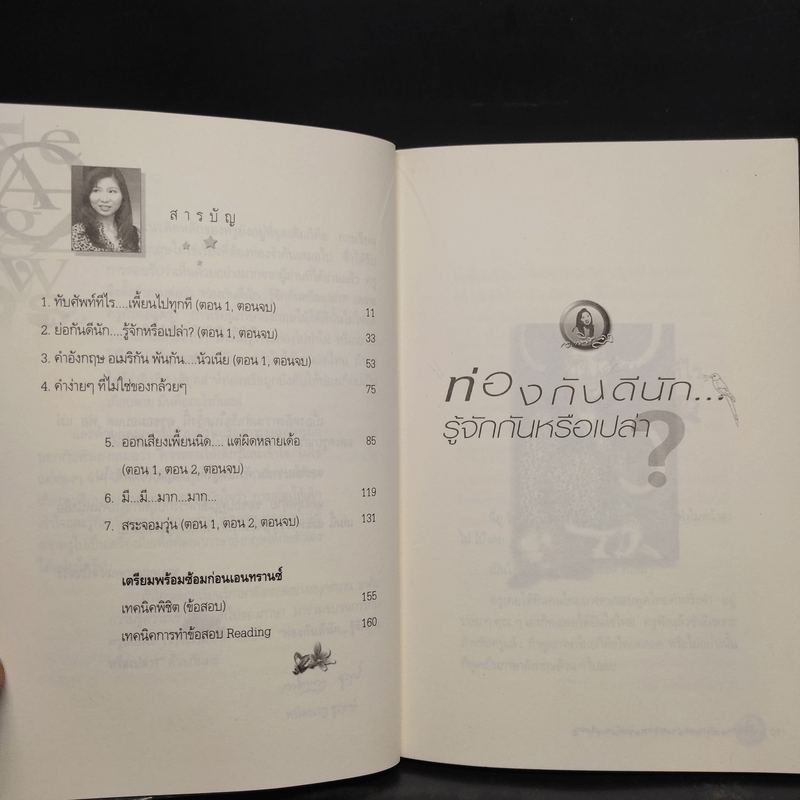 สารบัญ
1. ทับศัพท์ทีไร....เพี้ยนไปทุกที (ตอน 1, ตอนจบ) 11
2. ย่อกันดีนัก....รู้จักหรือเปล่า? (ตอน 1, ตอนจบ) 33
3. คำอังกฤษ อเมริกัน พันกัน....นัวเนีย (ตอน 1, ตอนจบ) 53
4. คำง่ายๆ ที่ไม่ใช่ของกล้วยๆ 75
5. ออกเสียงเพี้ยนนิด.... แต่ผิดหลายเด้อ 85
(ตอน 1, ตอน 2, ตอนจบ)
6. มี...มี...มาก...มาก... 119
7. สระจอมวุ่น (ตอน 1, ตอน 2, ตอนจบ) 131
เตรียมพร้อมซ้อมก่อนเอนทรานซ์
เทคนิคพิชิต (ข้อสอบ) 155
เทคนิคการทำข้อสอบ Reading 160
ท่องกันดีนัก...
รู้จักกันหรือเปล่า
?